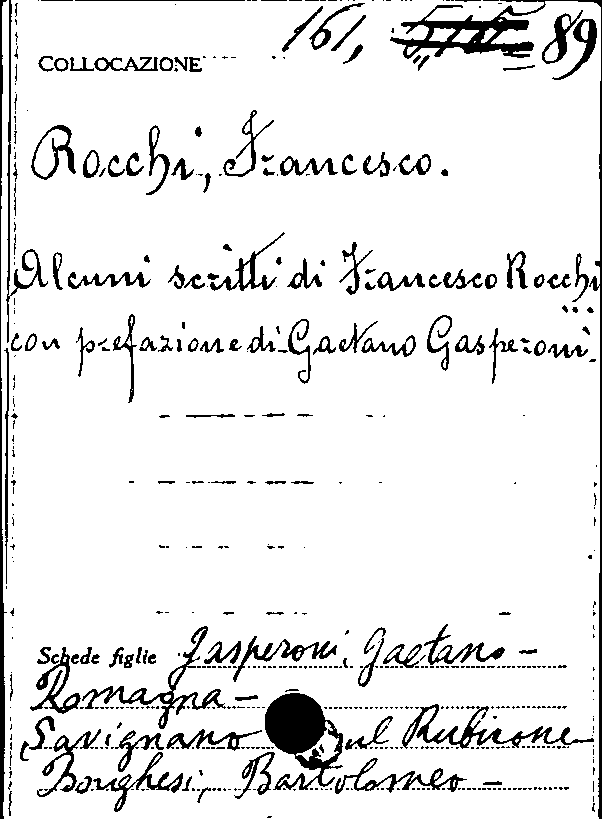 COLLOCAZIONE 161, 89
Rocchi, Francesco.
Alcuni scritti di Francesco Rocchi
...
con prefazione di Gaetano Gasperoni.
Schede figlie Gasperoni, Gaetano -
Romagna -
Savignano sul Rubicone
Borghesi, Bartolomeo -